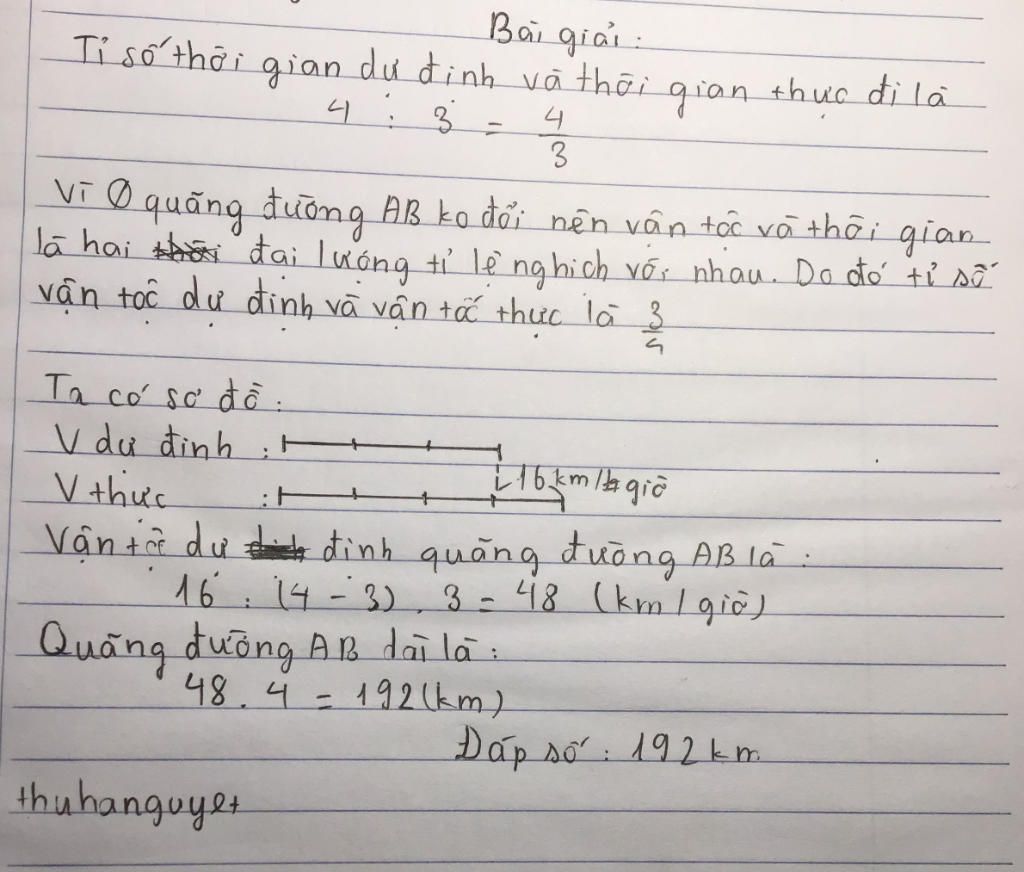 Bài giải:
Tỉ số thời gian dự định và thời gian thực đi là
4 : 3 = 4/3
Vì quãng đường AB ko đổi nên vận tốc và thời gian
là hai đại lượng tỉ lệ nghịch với nhau. Do đó tỉ số
vận tốc dự định và vận tốc thực là 3/4
Ta có sơ đồ:
V dự định :
16 km/giờ
V thực :
Vận tốc dự định quãng đường AB là:
16 : (4 - 3) . 3 = 48 (km/giờ)
Quãng đường AB dài là:
48 . 4 = 192 (km)
Đáp số: 192 km
thuhanguyet